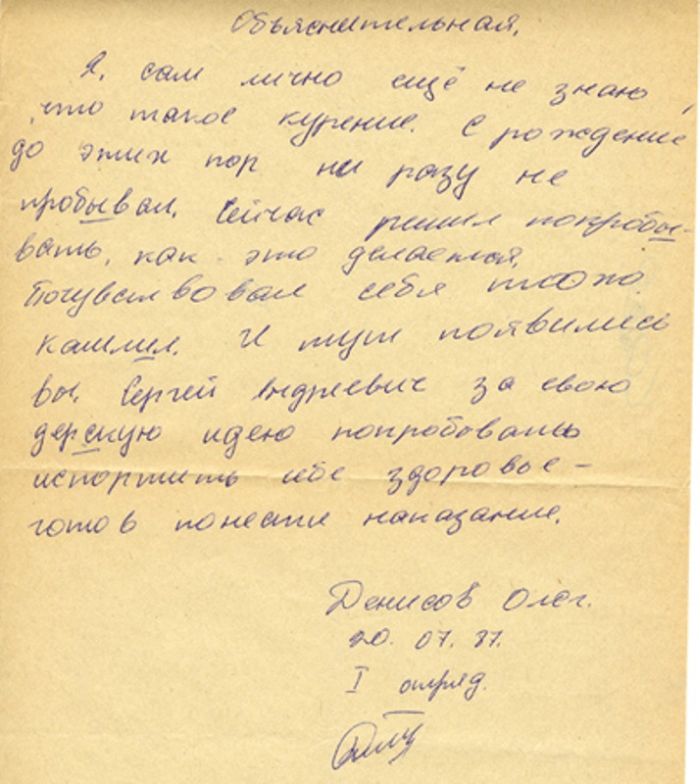 Объяснительная.
Я, сам лично ещё не знаю,
что такое курение. С рождение
до этих пор ни разу не
пробывал. Сейчас решил попробы-
вать, как это делается.
Почувствовал себя плохо
кашлил. И тут появились
вы, Сергей Андреевич за свою
дерскую идею попробовать
испортить себе здоровье –
готов понести наказание.
Денисов Олег.
20. 07. 87.
I отряд.